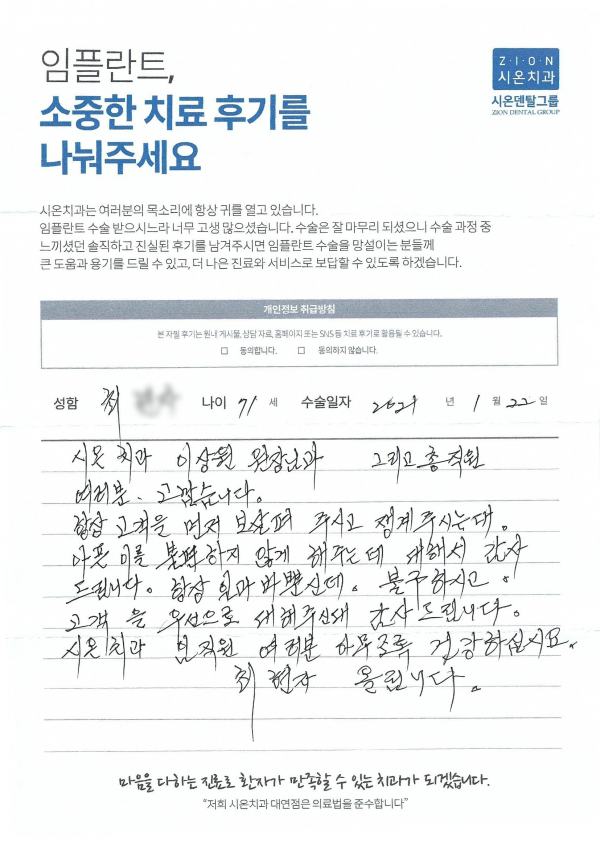 임플란트,
소중한 치료 후기를
나눠주세요
Z·I·O·N
시온치과
시온덴탈그룹
ZION DENTAL GROUP
시온치과는 여러분의 목소리에 항상 귀를 열고 있습니다.
임플란트 수술 받으시느라 너무 고생 많으셨습니다. 수술은 잘 마무리 되셨으니 수술 과정 중
느끼셨던 솔직하고 진실된 후기를 남겨주시면 임플란트 수술을 망설이는 분들께
큰 도움과 용기를 드릴 수 있고, 더 나은 진료와 서비스로 보답할 수 있도록 하겠습니다.
개인정보 취급방침
본 자필 후기는 원내 게시물, 상담 자료, 홈페이지 또는 SNS 등 치료 후기로 활용될 수 있습니다.
☐ 동의합니다. ☐ 동의하지 않습니다.
성함 최 나이 71 세 수술일자 2021 년 1 월 22 일
시온 치과 이상원 원장님과 그리고 총직원
여러분. 고맙습니다.
항상 고객을 먼저 보살펴 주시고 챙계주시는대.
아픈 이를 불편하지 않게 해주는데 대해서 감사
드립니다. 항상 일과 바쁘신데. 불구하시고.
고객을 우선으로 대해주신대 감사드립니다.
시온 치과 임직원 여러분 아무조록 건강하십시요.
최 현자 올립니다.
마음을 다하는 진료로 환자가 만족할 수 있는 치과가 되겠습니다.
"저희 시온치과 대연점은 의료법을 준수합니다"